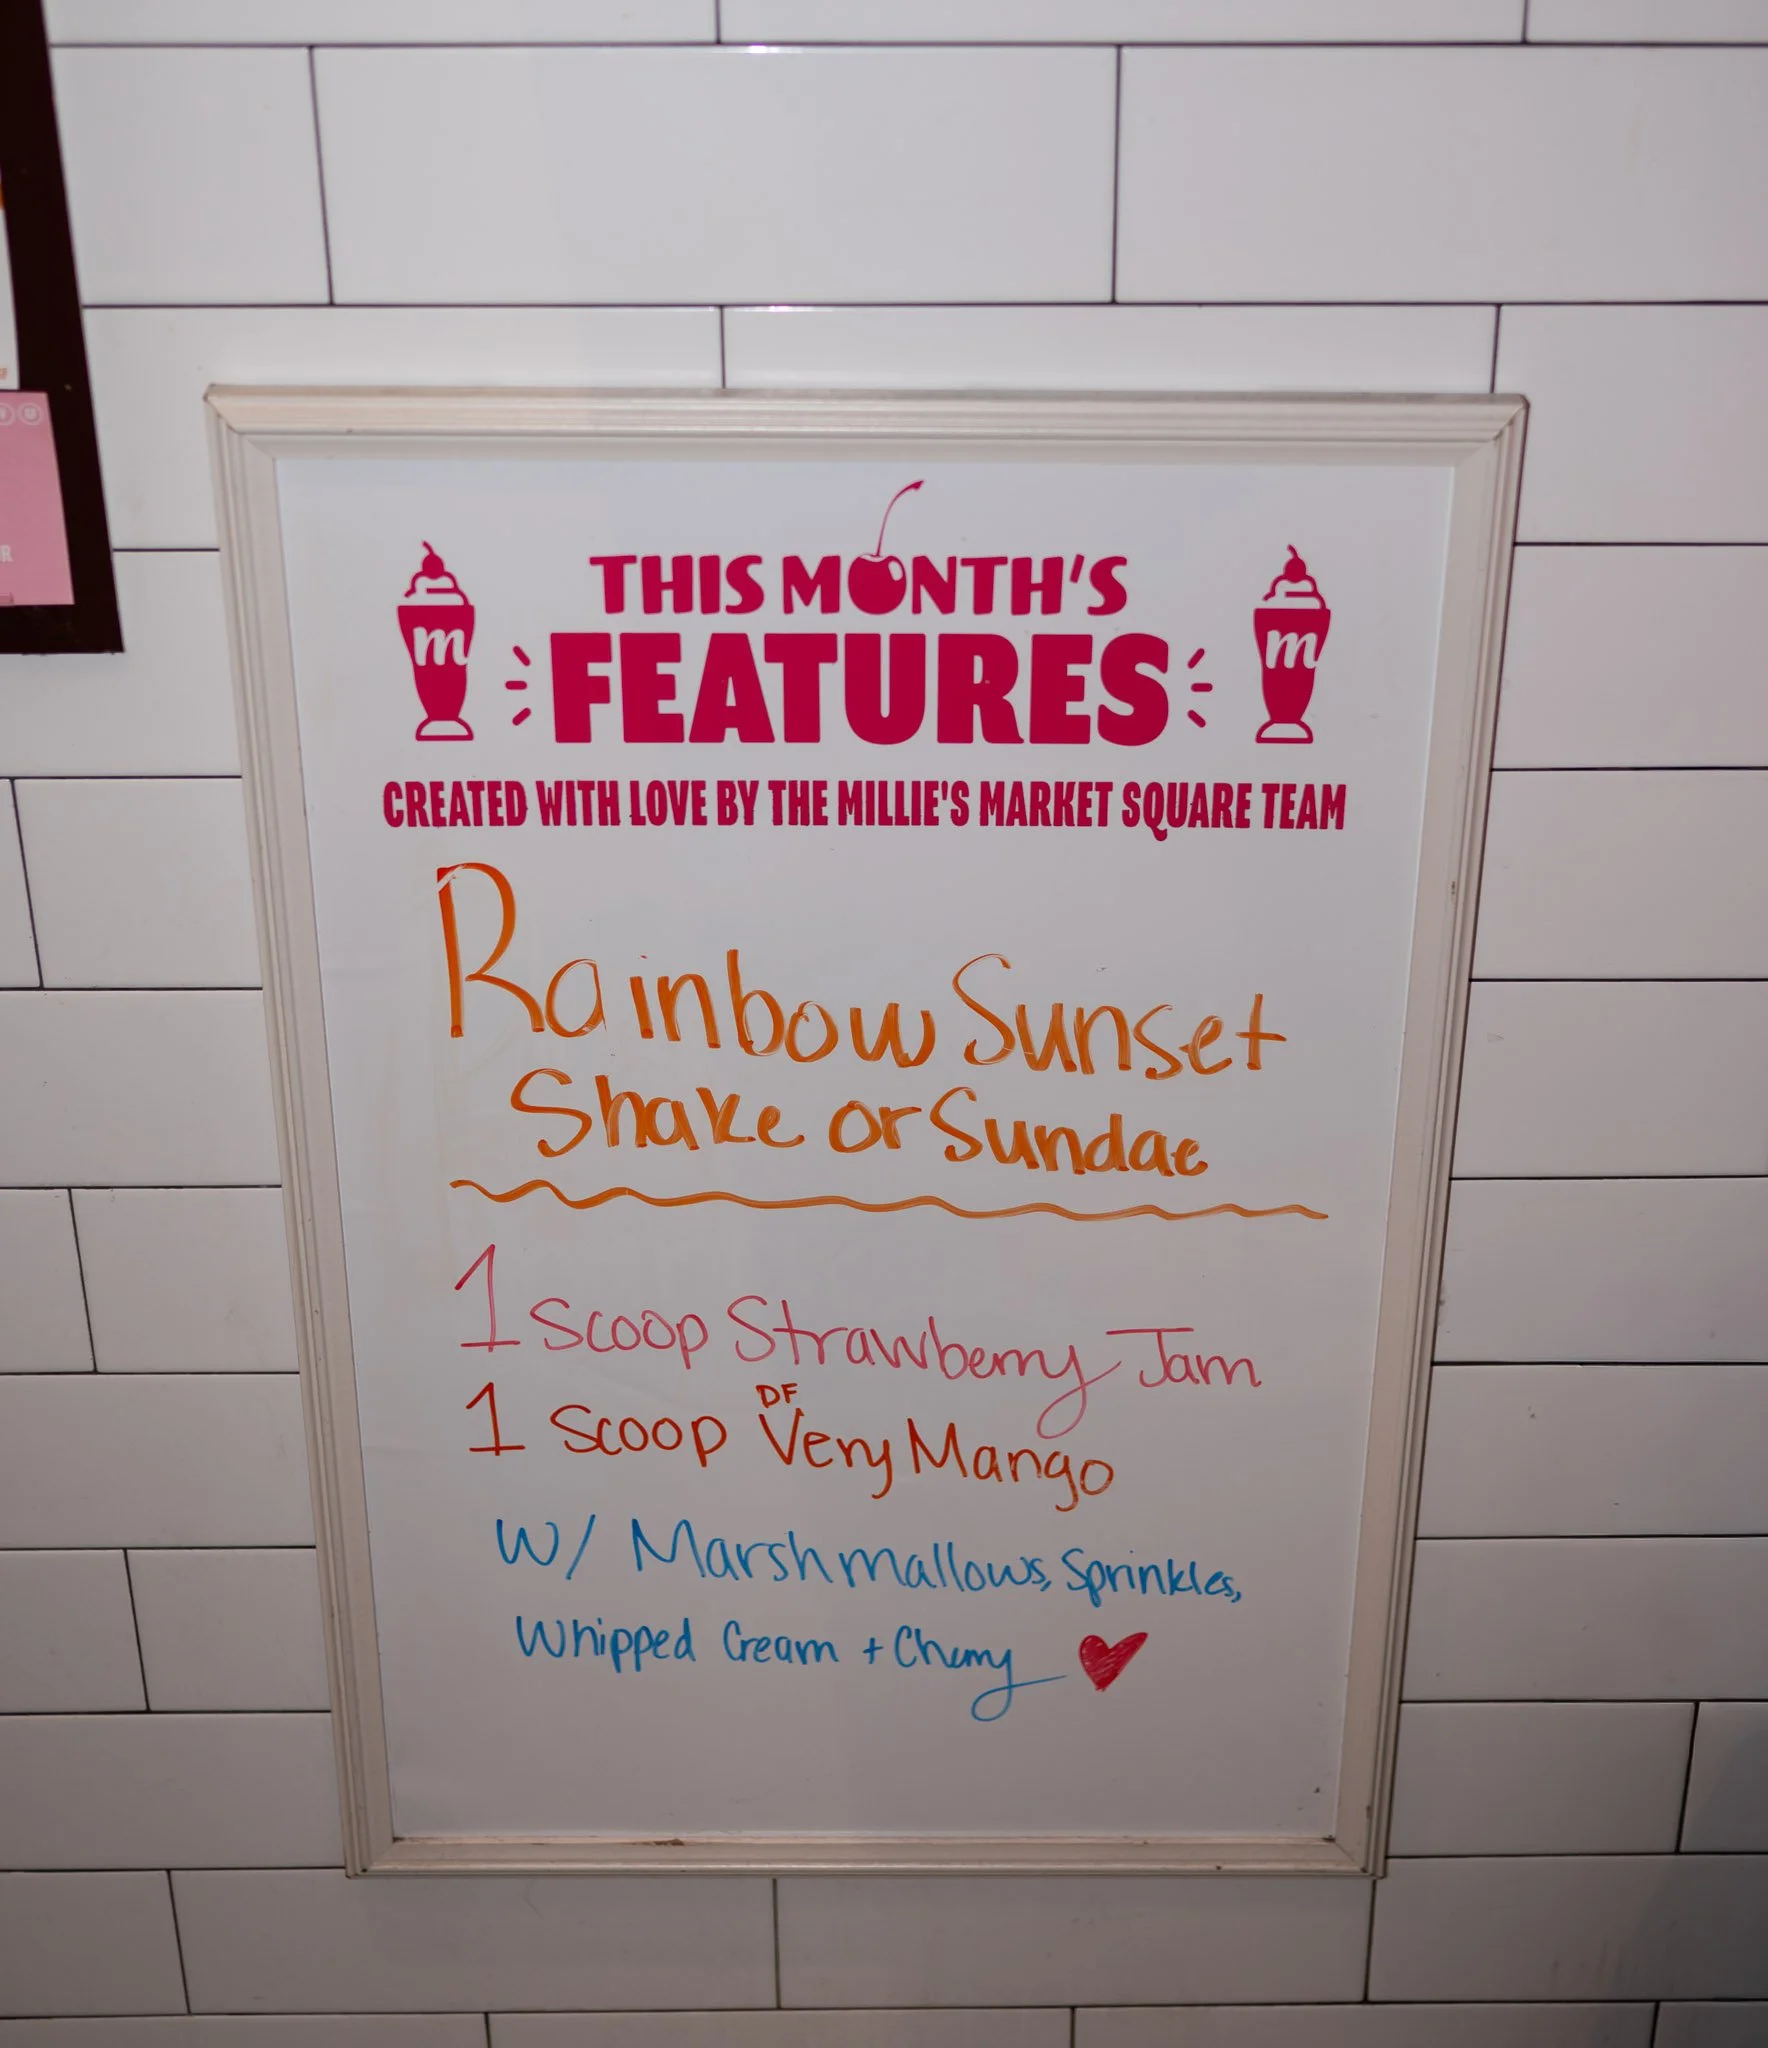 THIS MONTH'S
FEATURES
CREATED WITH LOVE BY THE MILLIE'S MARKET SQUARE TEAM
m
m
Rainbow Sunset
Shake or Sundae
1 Scoop Strawberry Jam
DF
1 Scoop Very Mango
W/ Marshmallows, Sprinkles,
Whipped Cream + Cherry
R